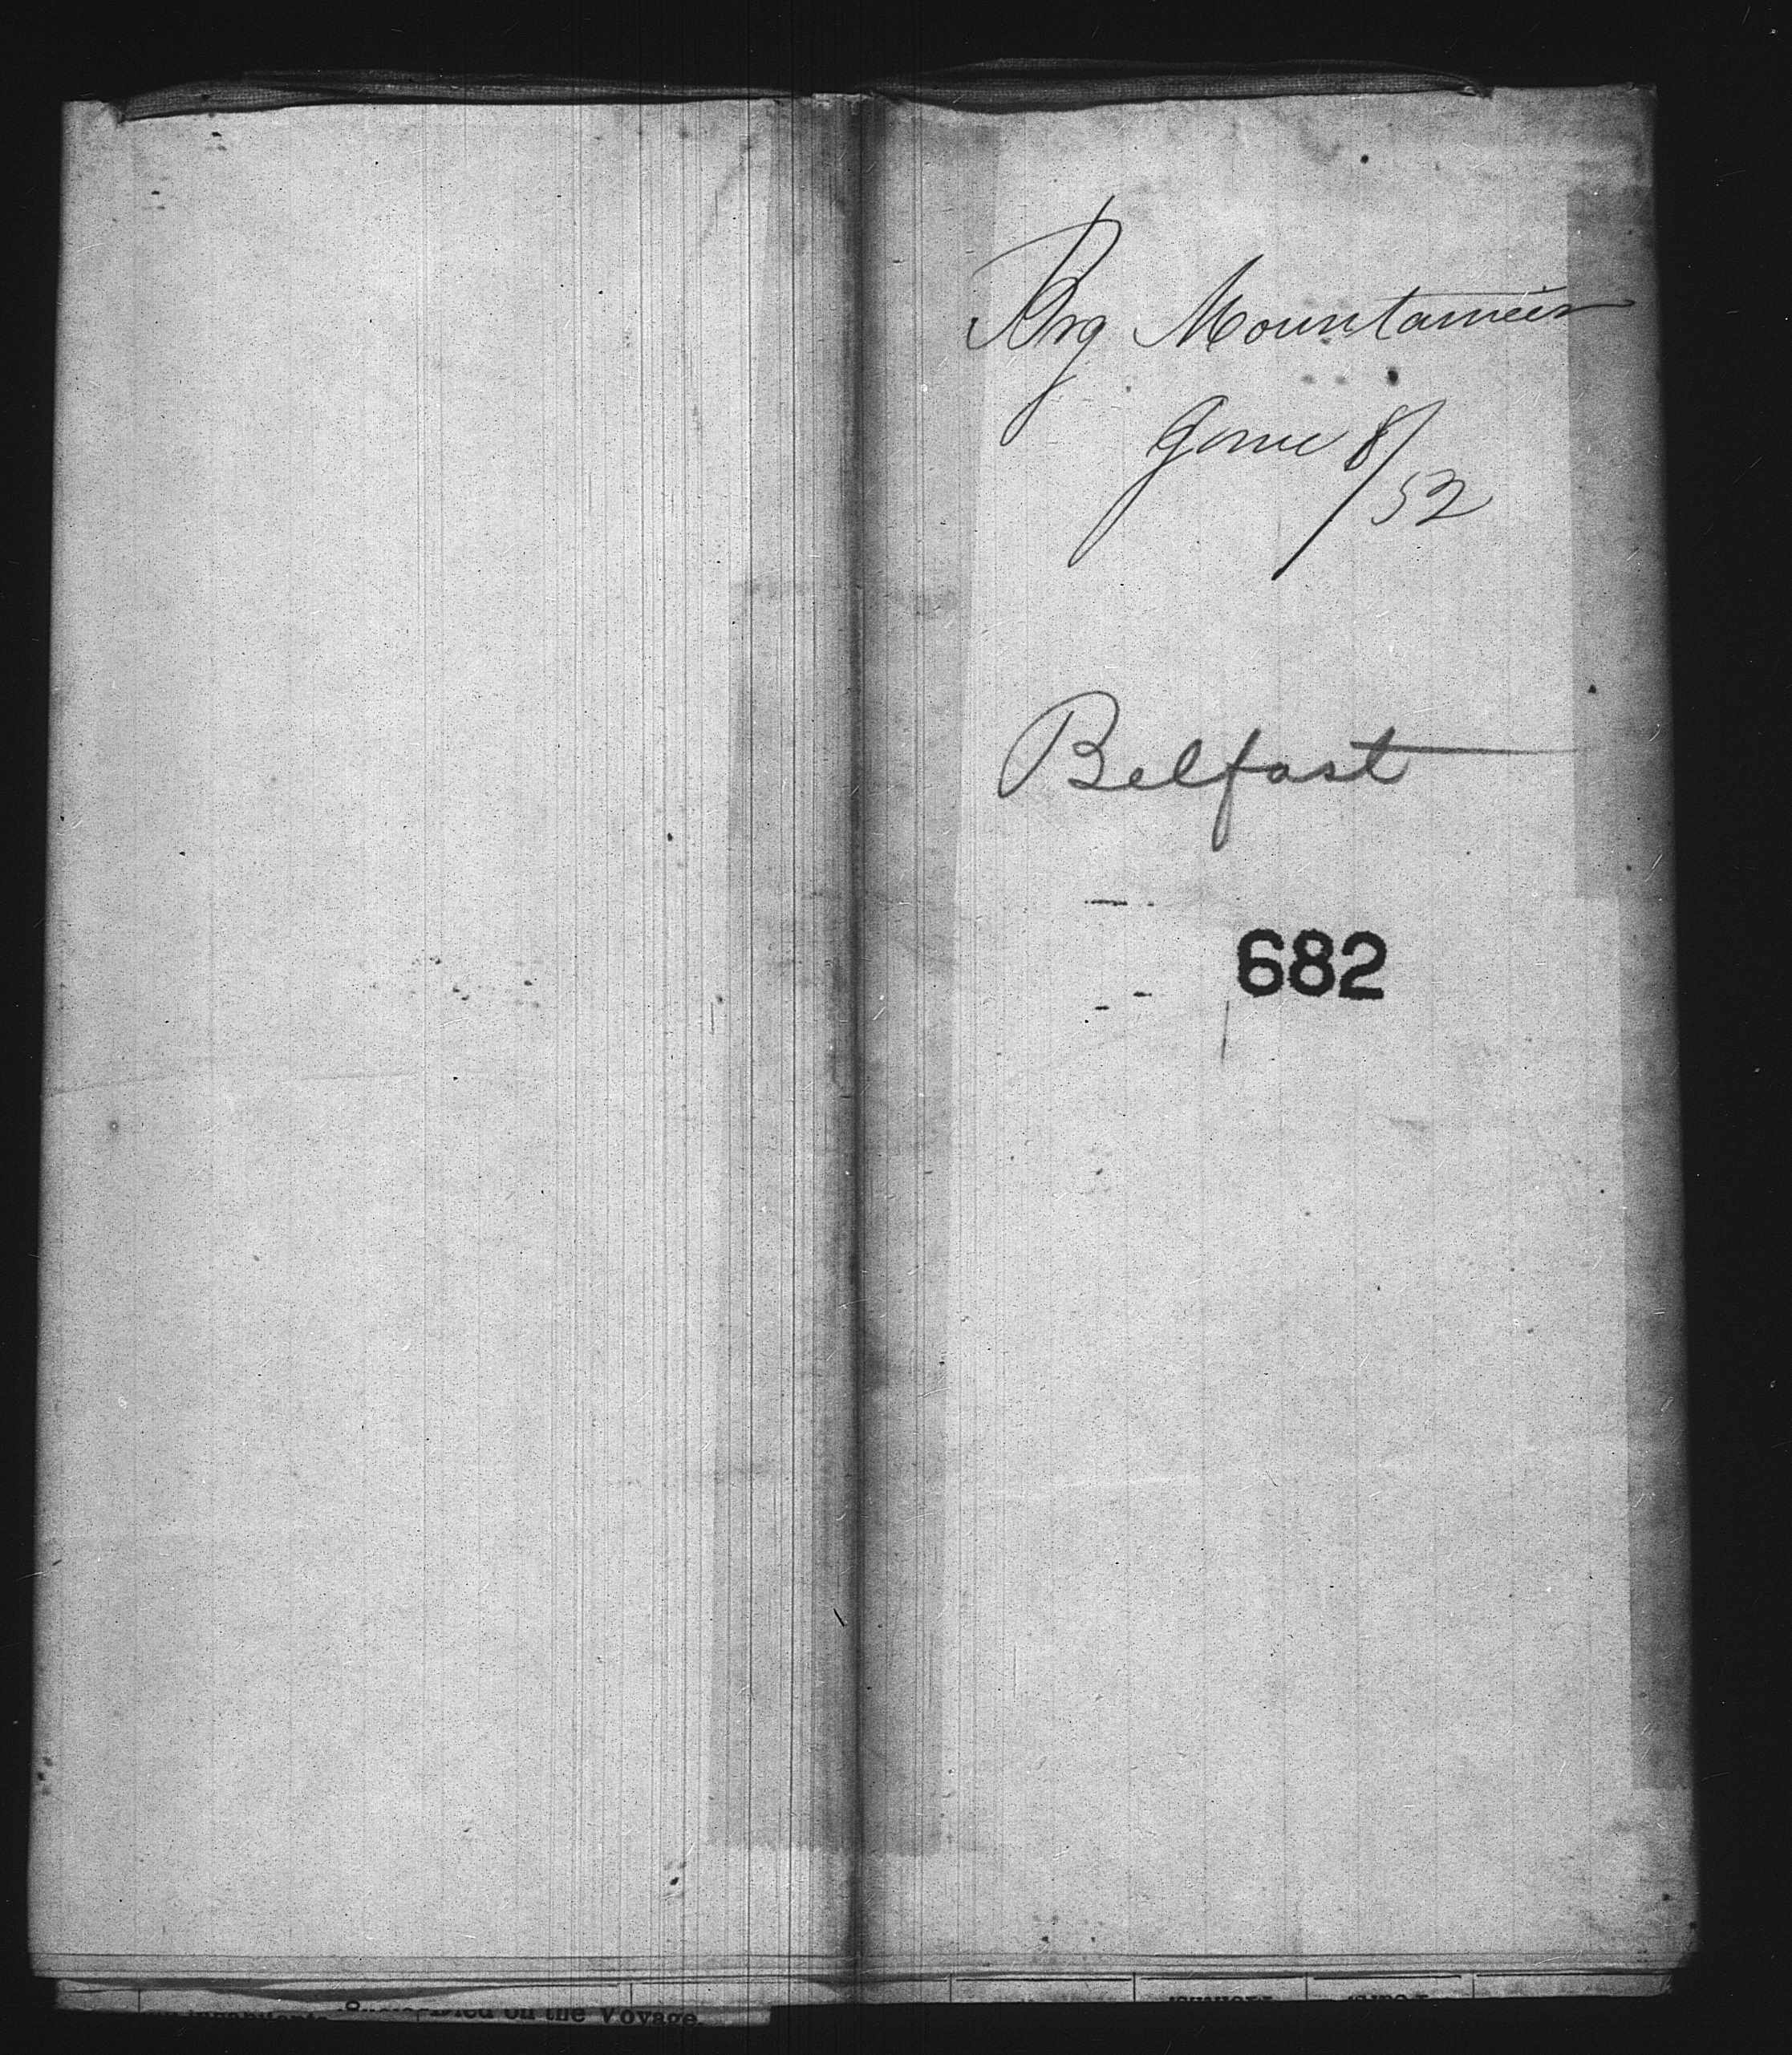 Brg Mountaineer
June 8/52
Belfast
682
Died on the Voyage.